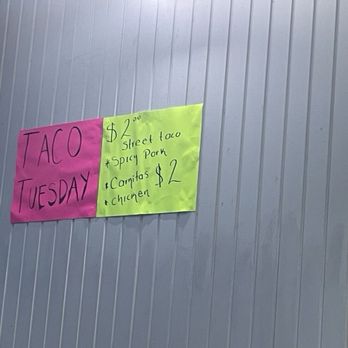 TACO
TUESDAY
$2.00
Street taco
* Spicy Pork
* Carnitas $2
* chicken